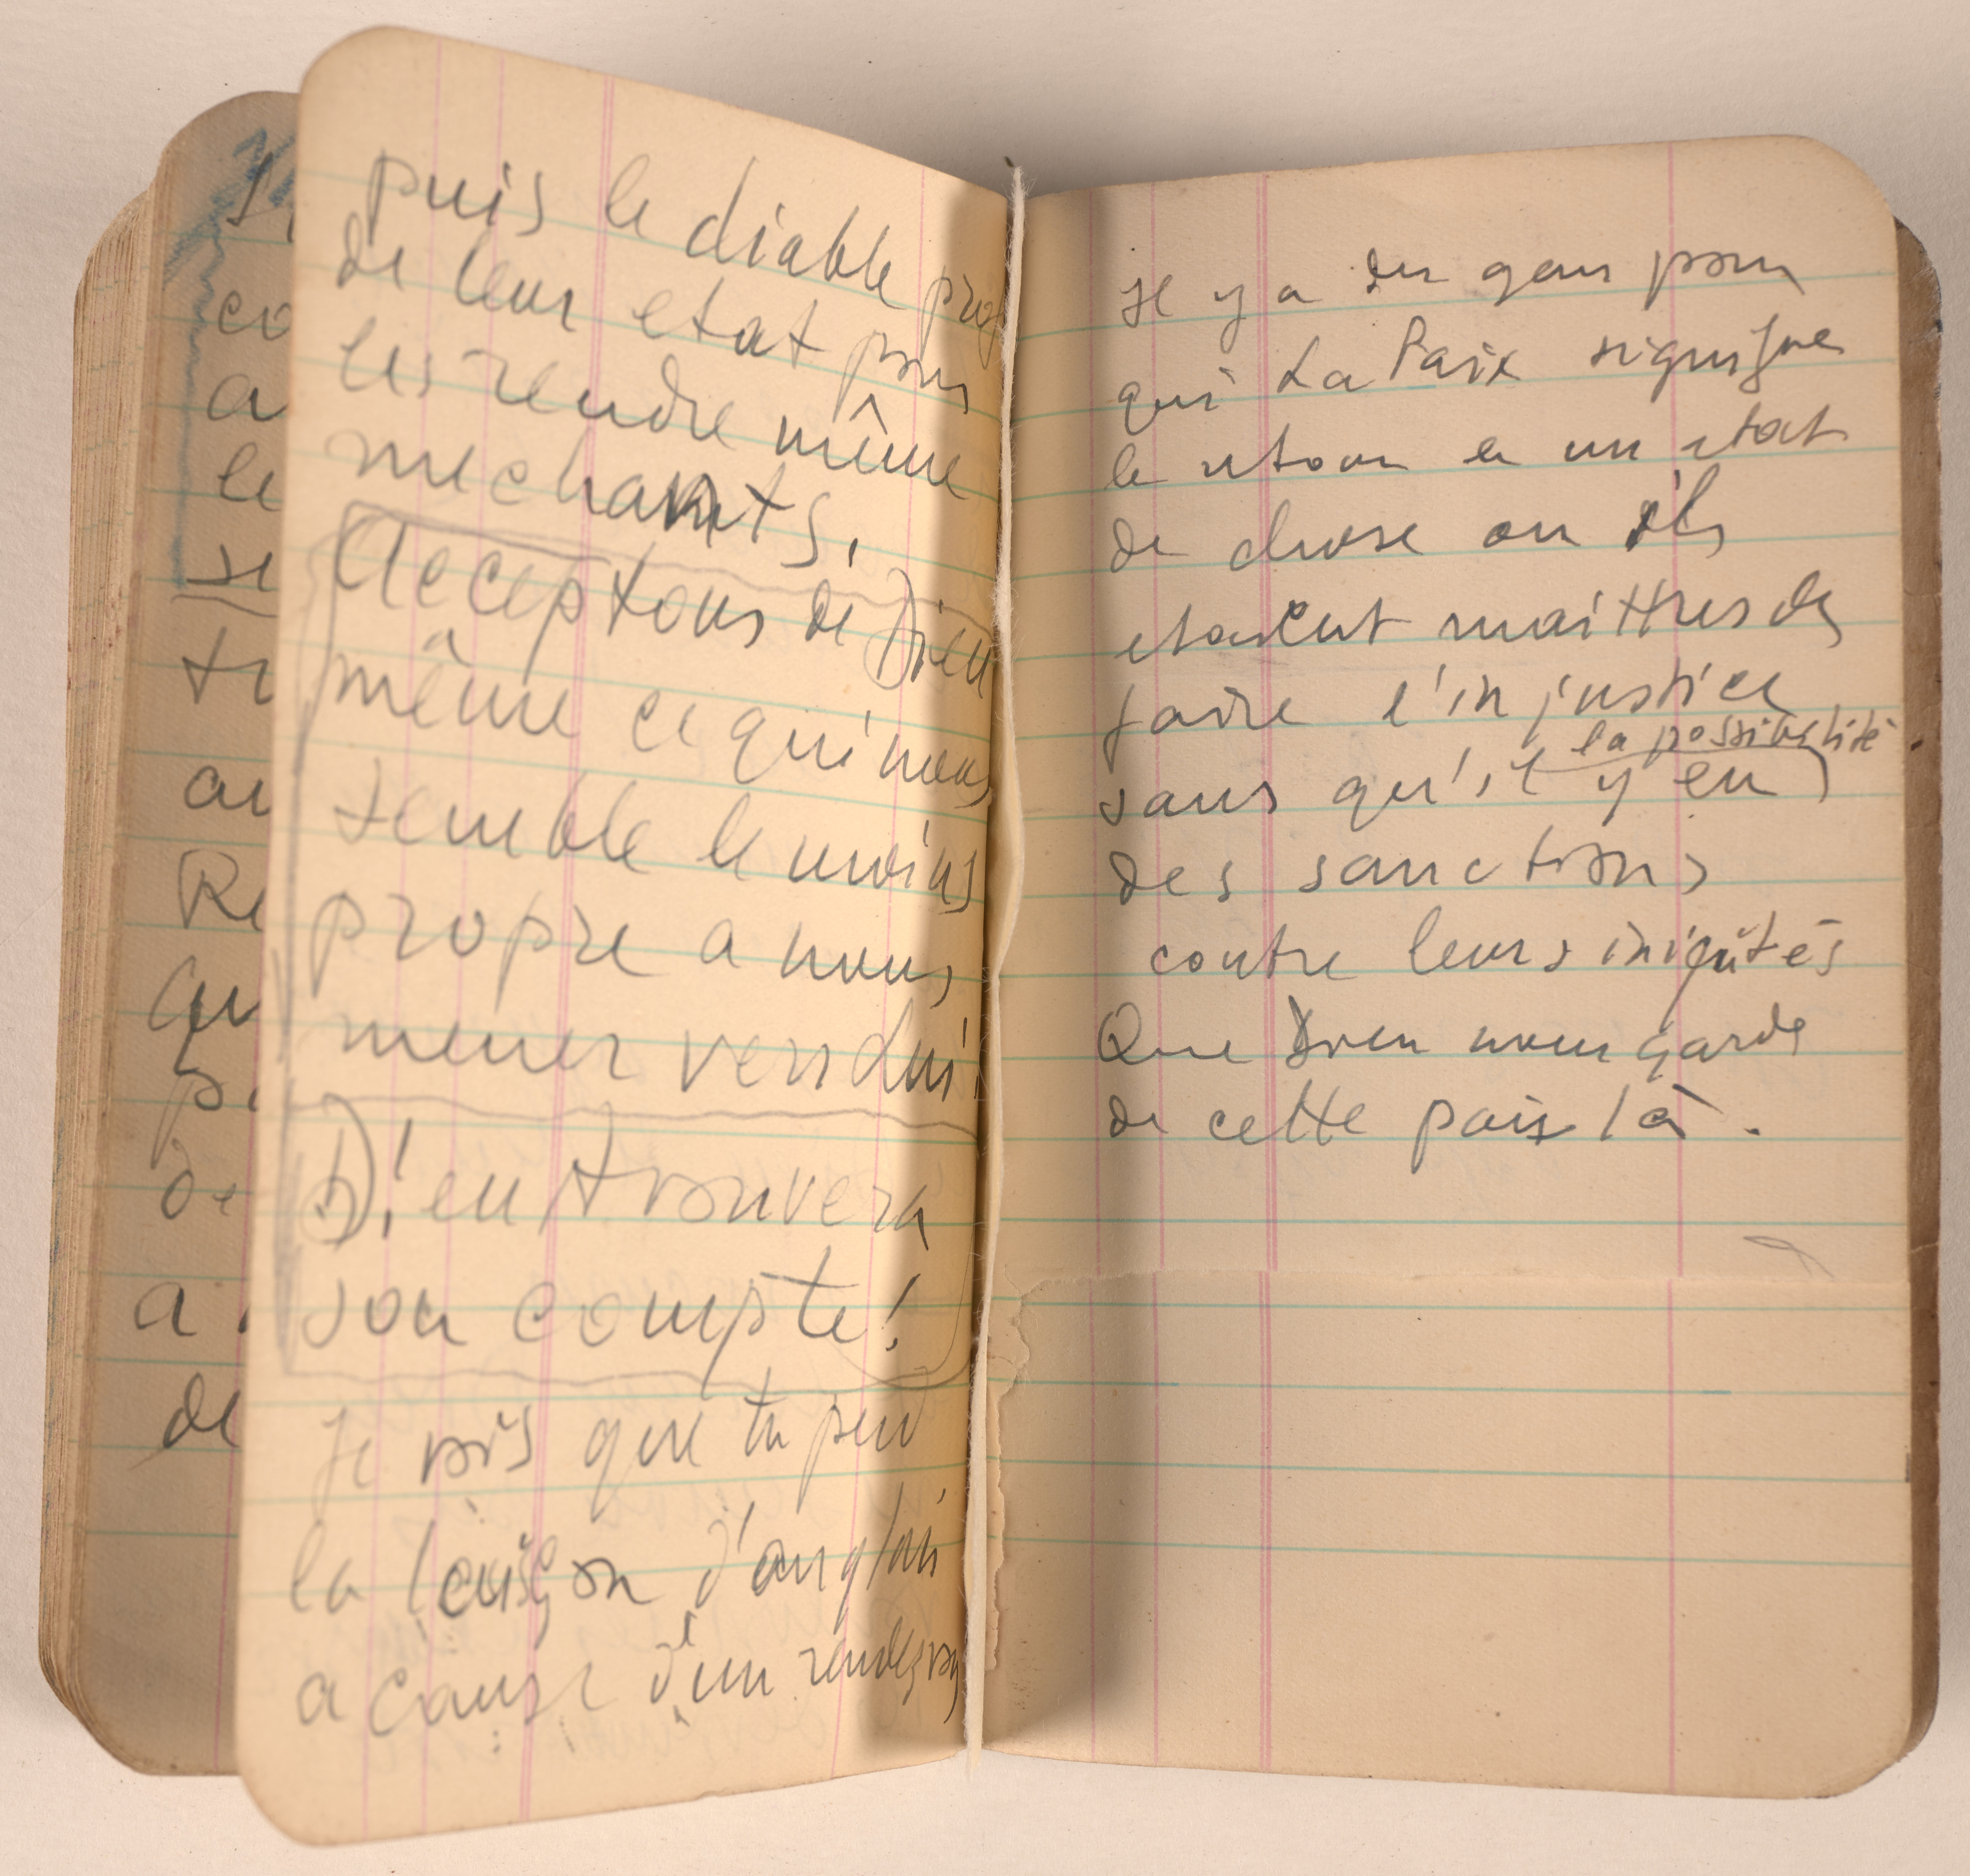 puis le diable prof
de leur etat pour
les rendre même
mechants.
Acceptons de Dieu
même ce qui nous
semble le moins
propre a nous
mener vers lui.
Dieu trouvera
son compte!
je vois que tu perd
la leçon d'anglais
a cause d'un rendezvous
Il y a des gens pour
qui La Paix signifie
le retour a un etat
de chose ou ils
etaient maittres de
faire l'injustice
la possibilité
sans qu'il y en
des sanctions
contre leurs iniqùtés
Que Dieu nous garde
de cette paix là.
co
a
le
se
tr
au
Re
Qu
de
a
de